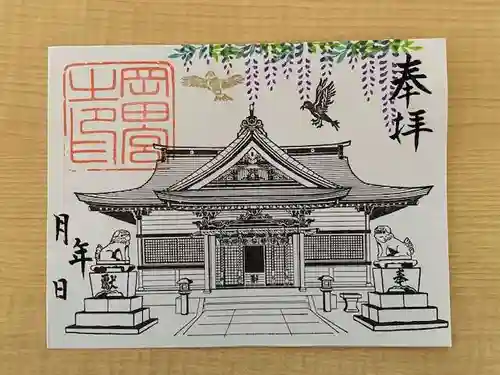 奉拝
岡田宮
之印
年
月日
奉
献